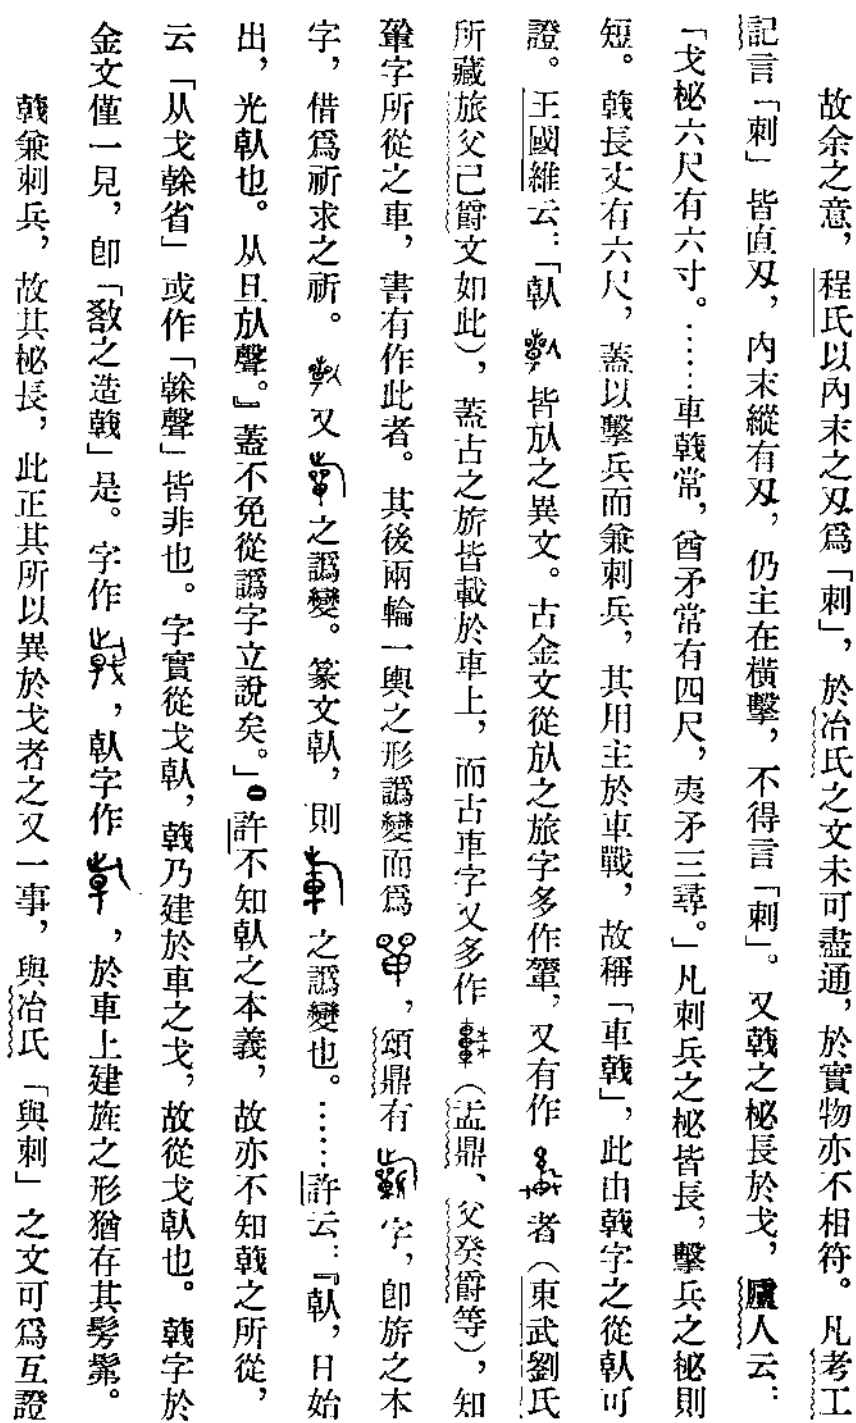 故余之意，程氏以內末之刃爲「刺」，於冶氏之文未可盡通，於實物亦不相符。凡考工
記言「刺」皆直刃，內末縱有刃，仍主在橫擊，不得言「刺」。又戟之柲長於戈，廬人云：
「戈柲六尺有六寸。……車戟常，酋矛常有四尺，夷矛三尋。」凡刺兵之柲皆長，擊兵之柲則
短。戟長丈有六尺，蓋以擊兵而兼刺兵，其用主於車戰，故稱「車戟」，此由戟字之從倝可
證。王國維云：「倝 皆㫃之異文。古金文從㫃之旅字多作𨍱，又有作 者（東武劉氏
所藏旅父己爵文如此），蓋古之旂皆載於車上，而古車字又多作 （盂鼎、父癸爵等），知
𨍱字所從之車，書有作此者。其後兩輪一輿之形譌變而爲 ，頌鼎有 字，卽旂之本
字，借爲祈求之祈。 又 之譌變。篆文倝，則 之譌變也。……許云：『倝，日始
出，光倝也。从旦㫃聲。』蓋不免從譌字立說矣。」㊀許不知倝之本義，故亦不知戟之所從，
云「从戈榦省」或作「榦聲」皆非也。字實從戈倝，戟乃建於車之戈，故從戈倝也。戟字於
金文僅一見，卽「敎之造戟」是。字作 ，倝字作 ，於車上建旌之形猶存其髣髴。
戟兼刺兵，故其柲長，此正其所以異於戈者之又一事，與冶氏「與刺」之文可爲互證